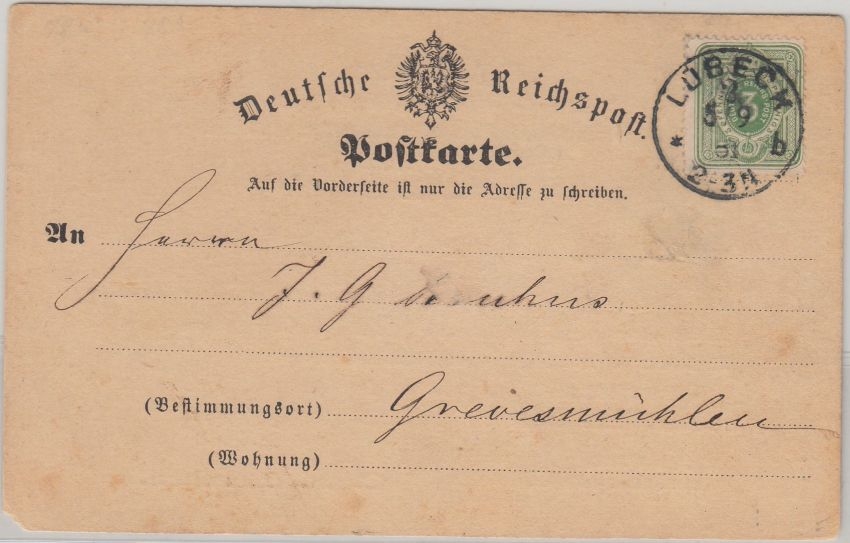 Deutsche Reichspost.
Postkarte.
Auf die Vorderseite ist nur die Adresse zu schreiben.
LÜBECK
5 9
* 91 b
2-3N
3
An Herrn
J. G
(Bestimmungsort) Grevesmühlen
(Wohnung)